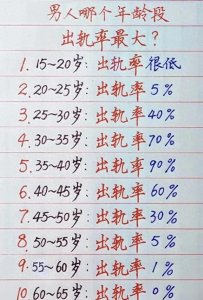 男人哪个年龄段
出轨率最大?
1. 15~20岁: 出轨率 很低
2. 20~25岁: 出轨率 5%
3. 25~30岁: 出轨率 40%
4. 30~35岁: 出轨率 70%
5. 35~40岁: 出轨率 90%
6. 40~45岁: 出轨率 60%
7. 45~50岁: 出轨率 30%
8. 50~55岁: 出轨率 5%
9. 55~60岁: 出轨率 1%
10 60~65岁: 出轨率 0%